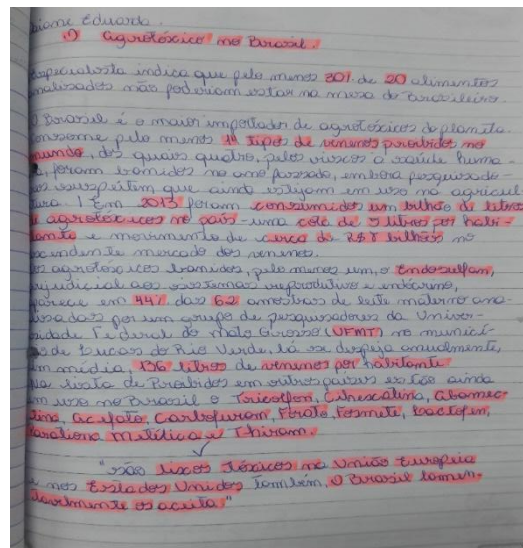 iane Eduarda.
1) agrotóxico no Brasil.
especialista indica que pelo menos 30% de 20 alimentos
analisados não poderiam estar na mesa do Brasileiro.
O Brasil é o maior importador de agrotóxicos do planeta.
Consome pelo menos 14 tipos de venenos proibidos no
mundo, dos quais quatro, pelos riscos a saúde huma-
a, foram banidos no ano passado, embora pesquisado-
es suspeitem que ainda estejam em uso na agricul
tura. Em 2013 foram consumidos um bilhão de litros
e agrotóxicos no país - uma cota de 5 litros por habi-
tante e movimento de cerca de R$ 8 bilhões no
ascendente mercado dos venenos.
os agrotóxicos banidos, pelo menos um, o Endosulfan,
ejudicial aos sistemas reprodutivo e endócrino,
parece em 44% das 62 amostras de leite materno ana-
isadas por um grupo de pesquisadores da Univer-
sidade Federal do Mato Grosso (UFMT) no municí-
io de Lucas do Rio Verde, lá se despeja anualmente,
em mídia, 136 litros de venenos por habitante
Na lista de Proibidos em outros países estão ainda
em uso no Brasil o Tricolfon, Cihexatina, Abamec-
tina, Acefato, Carbofuram, Forato, Fosmete, Lactofen,
Parationa Metílica e Thiram.
"são lixos tóxicos na União Europeia
e nos Estados Unidos também. O Brasil lamen-
tavelmente os aceita."